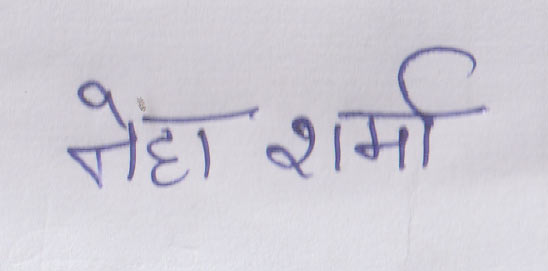 नेहा शर्मा